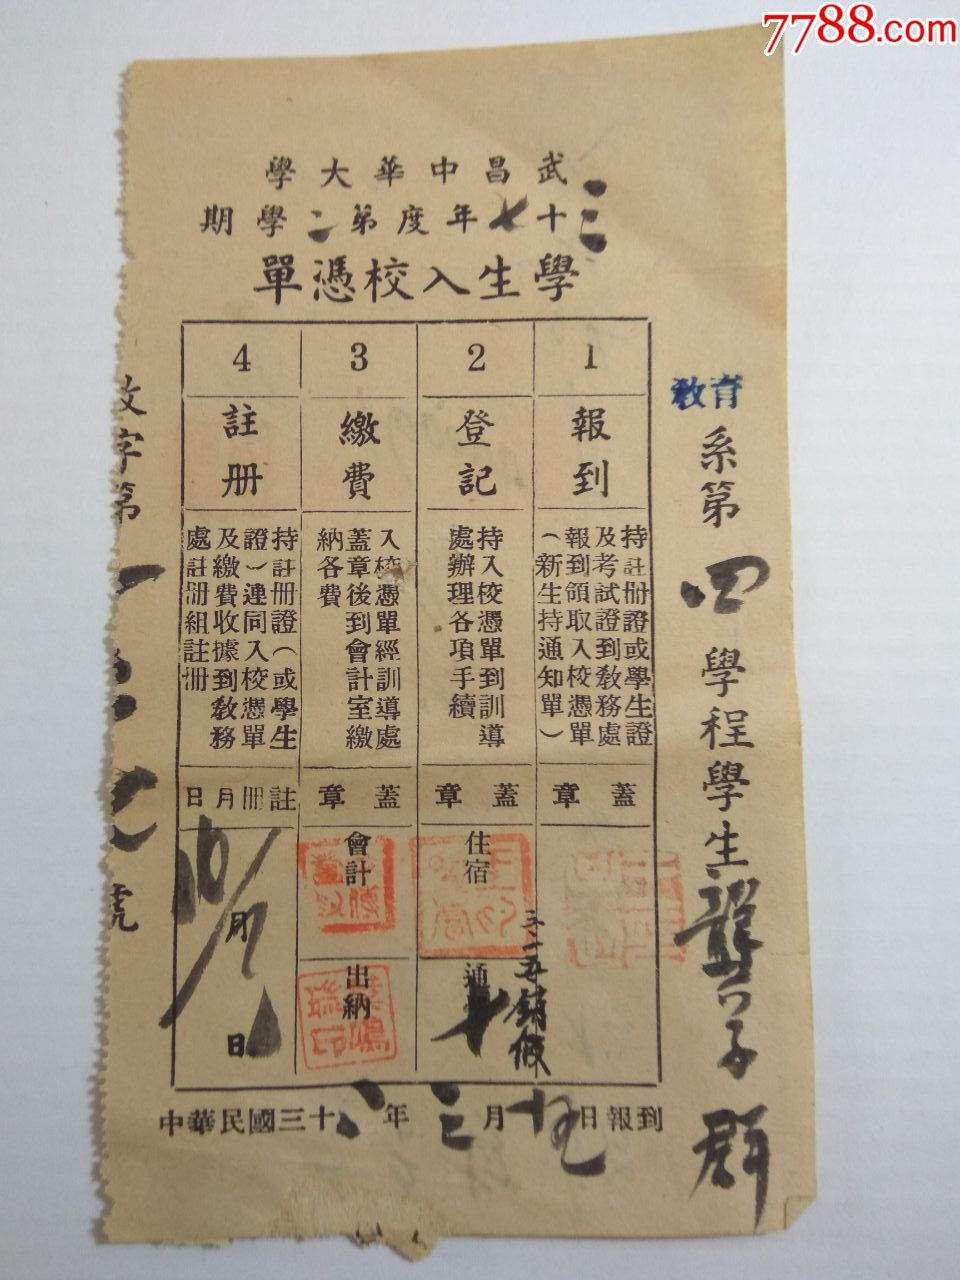 7788.com
武昌中華大學
三十七年度第二學期
學生入校憑單
教育系第四學程學生龔子群
1
報到
持註冊證或學生證
及考試證到教務處
報到領取入校憑單
（新生持通知單）
蓋章
2
登記
持入校憑單到訓導
處辦理各項手續
蓋章
住宿
通
三·一五銷假
3
繳費
入校憑單經訓導處
蓋章後到會計室繳
納各費
蓋章
會計
出納
4
註冊
持註冊證（或學生
證）連同入校憑單
及繳費收據到教務
處註冊組註冊
註冊月日
月
日
中華民國三十八年三月十五日報到
字第
號